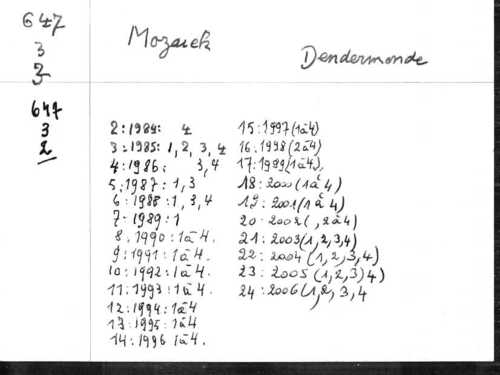 647
3
3
647
3
2
Mozaiek
Dendermonde
2:1984: 4
3:1985: 1, 2, 3, 4
4:1986: 3, 4
5:1987: 1, 3
6:1988: 1, 3, 4
7:1989: 1
8:1990: 1à4.
9:1991: 1à4.
10:1992: 1à4.
11:1993: 1à4.
12:1994: 1à4
13:1995: 1à4
14:1996 1à4.
15:1997 (1à4)
16:1998 (2à4)
17:1999 (1à4).
18:2000 (1à4)
19:2001 (1à4)
20:2002 (, 2à4)
21:2003 (1, 2, 3, 4)
22:2004 (1, 2, 3, 4)
23:2005 (1, 2, 3) 4)
24:2006 (1, 2, 3, 4